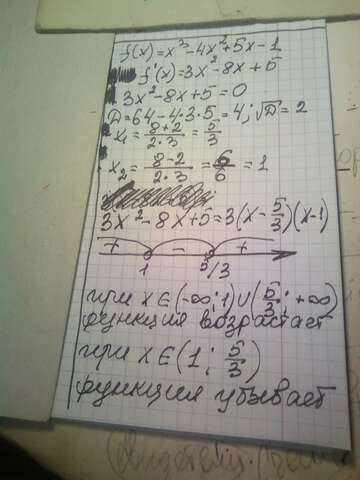 f(x)=x³-4x²+5x-1
f'(x)=3x²-8x+5
3x²-8x+5=0
D=64-4·3·5=4; √D=2
x₁=(8+2)/(2·3)=5/3
x₂=(8-2)/(2·3)=6/6=1
3x²-8x+5=3(x-5/3)(x-1)
+ - +
1 5/3
при x∈(-∞;1)∪(5/3;+∞)
функция возрастает
при x∈(1;5/3)
функция убывает